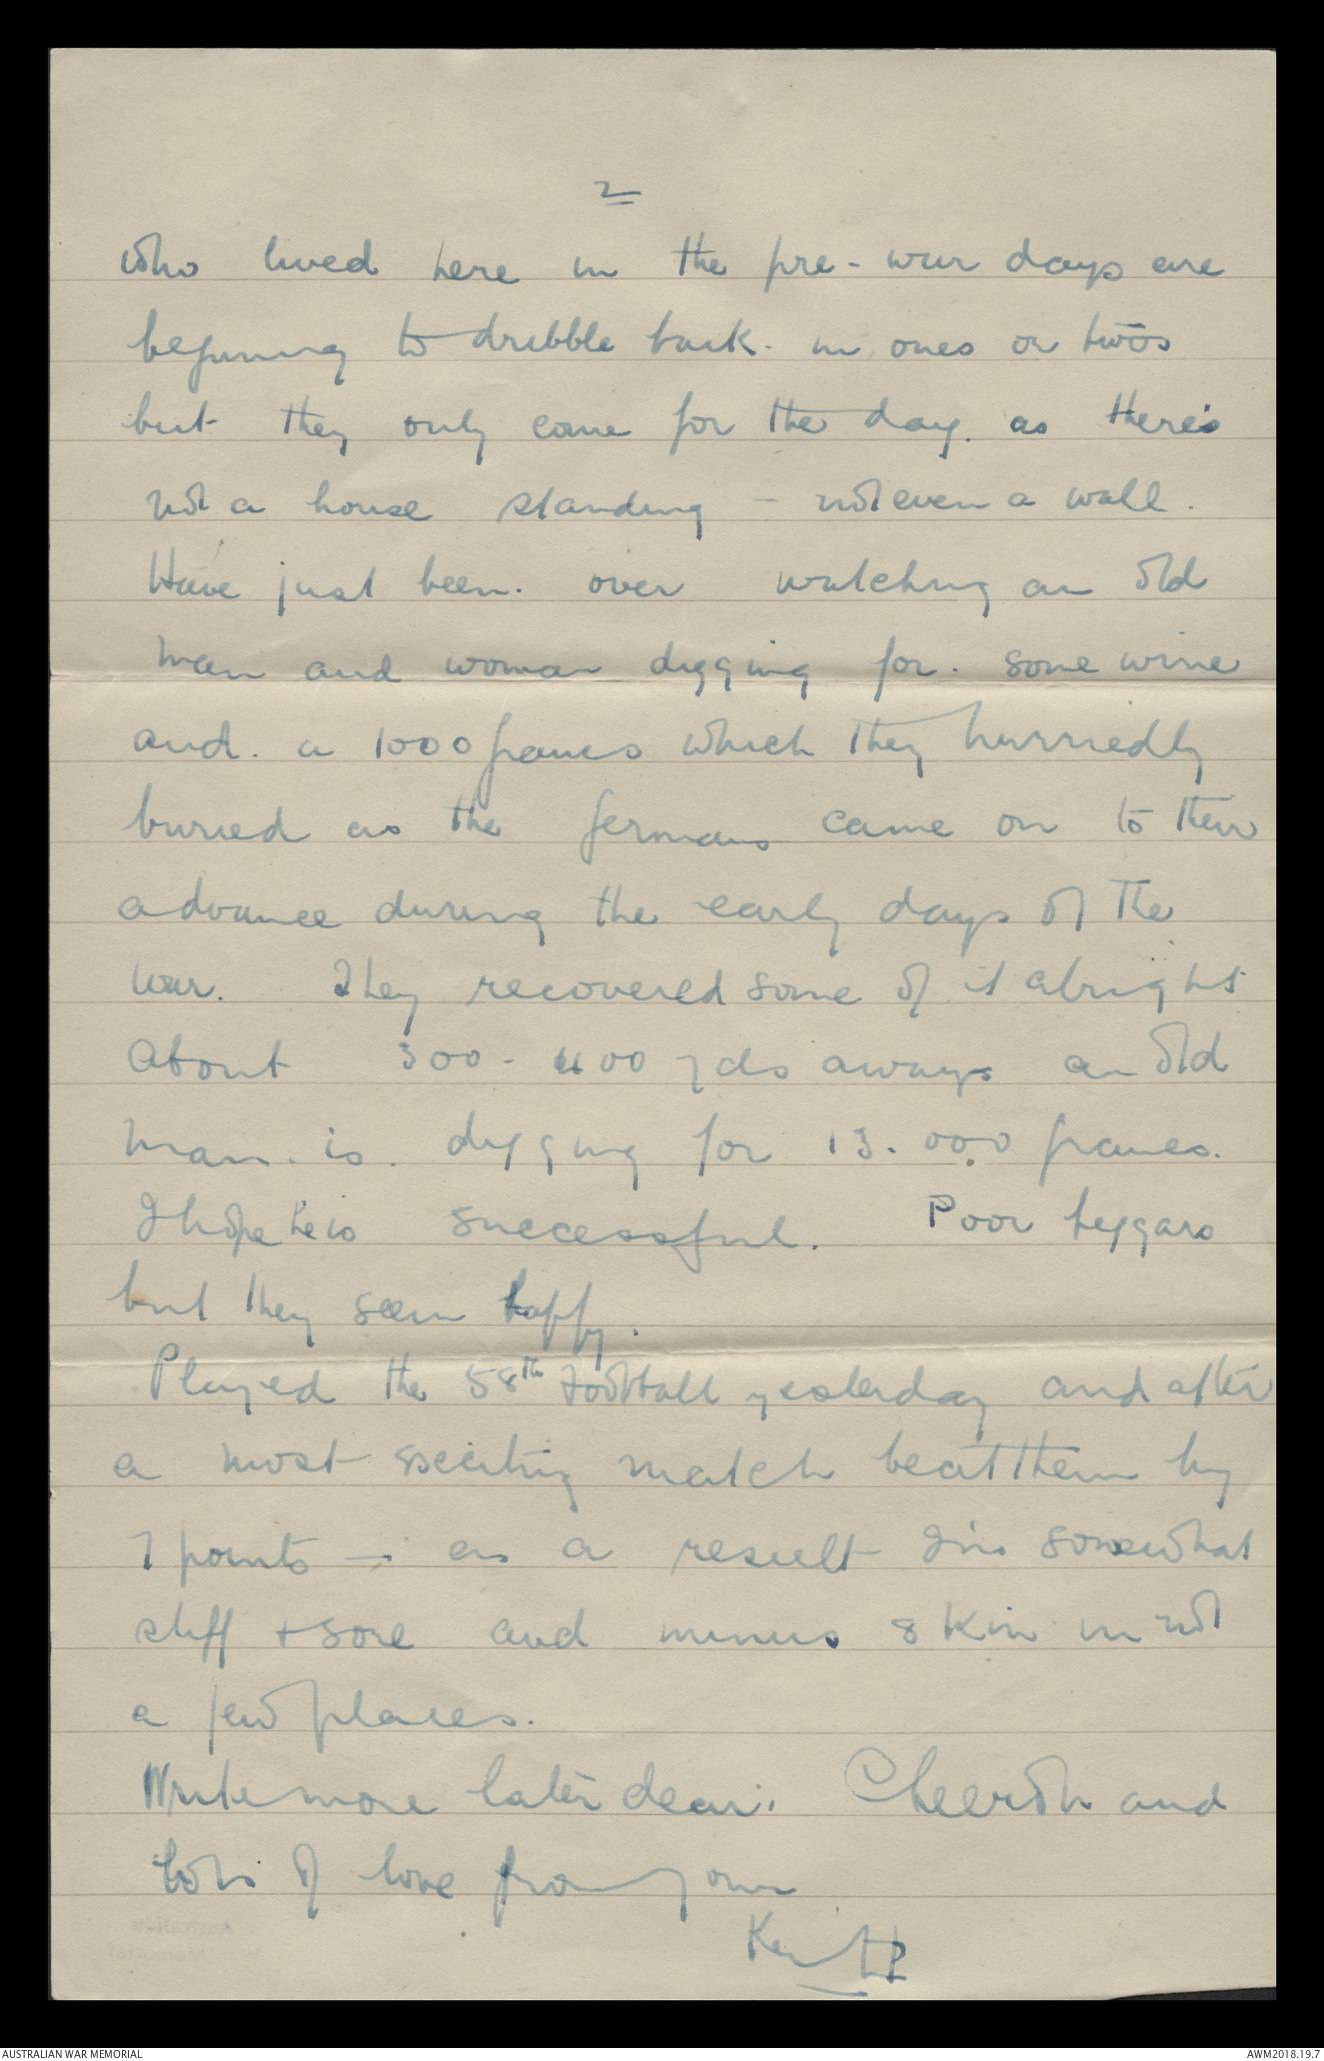 2
who lived here in the pre-war days are
beginning to dribble back in ones or twos
but they only come for the day. as there's
not a house standing - not even a wall.
Have just been over watching an old
man and woman digging for some wine
and a 1000 francs which they hurriedly
buried as the Germans came on to their
advance during the early days of the
war. They recovered some of it alright
About 300-400 yds aways an old
man is digging for 13.000 francs.
I hope he is successful. Poor beggars
but they seem happy.
Played the 58th football yesterday and after
a most exciting match beat them by
7 points - as a result I'm somewhat
stiff + sore and minus skin in not
a few places.
Write more later dear. Cheeroh and
lots of love from your
Keith
AUSTRALIAN WAR MEMORIAL
AWM2018.19.7